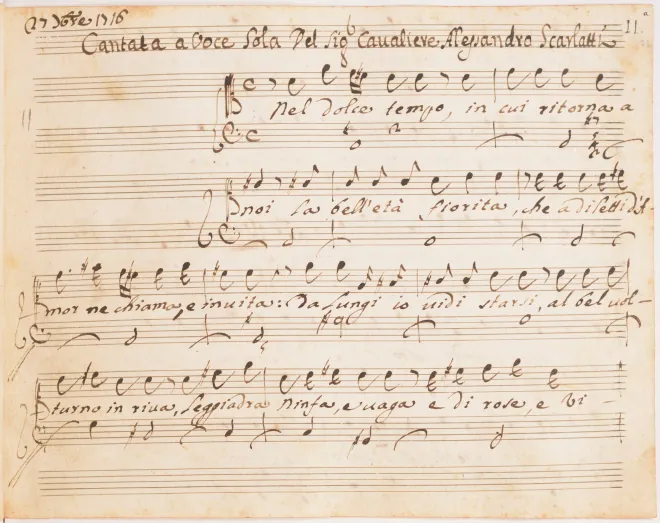 (27 Xbre 1716
Cantata a Voce Sola Del Sig.r Cavaliere Alessandro Scarlatti
11.
Nel dolce tempo, in cui ritorna a
noi la bell'età fiorita, che a diletti d'A-
mor ne chiama, e inuita: Da lungi io uidi starsi, al bel uol-
turno in riua, leggiadra Ninfa, e uaga e di rose, e vi-